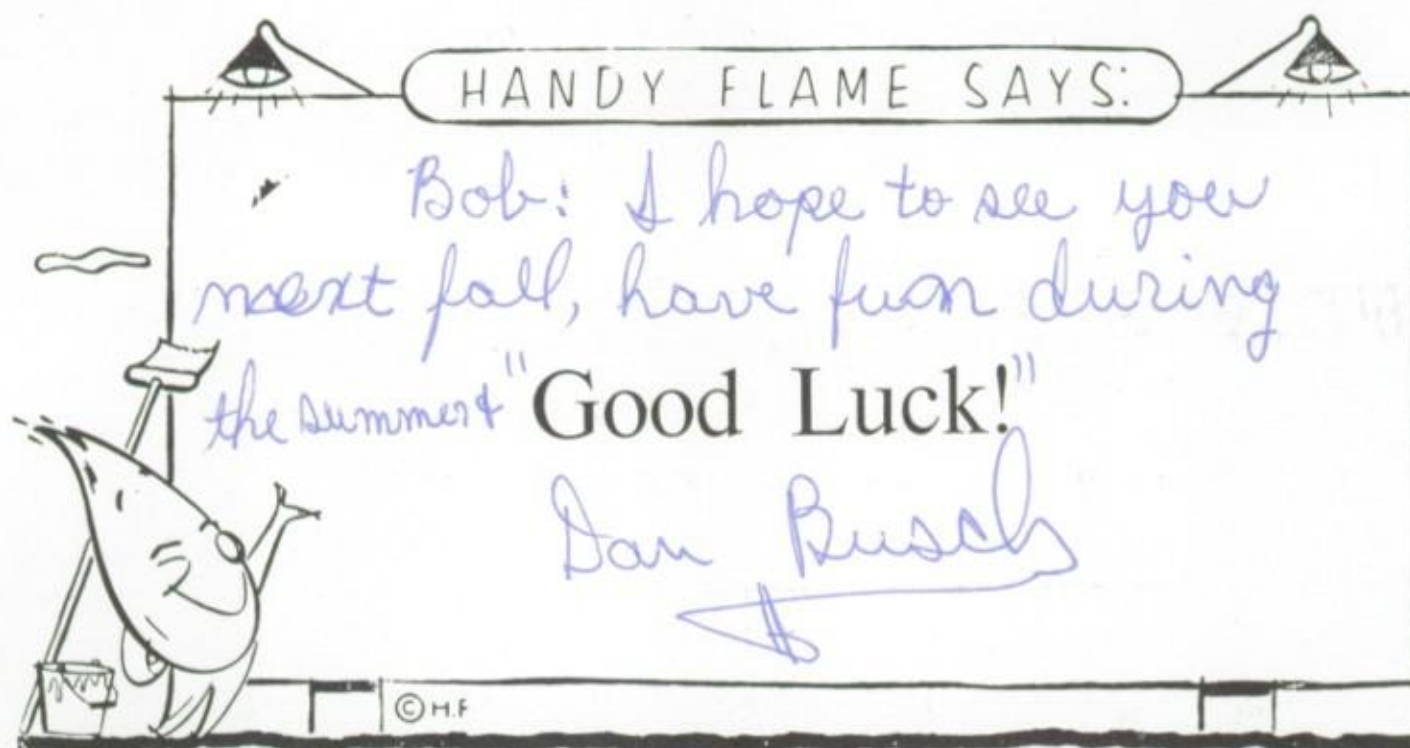 HANDY FLAME SAYS:
Bob: I hope to see you
next fall, have fun during
the summer & "Good Luck!"
Dan Busch
© H.F